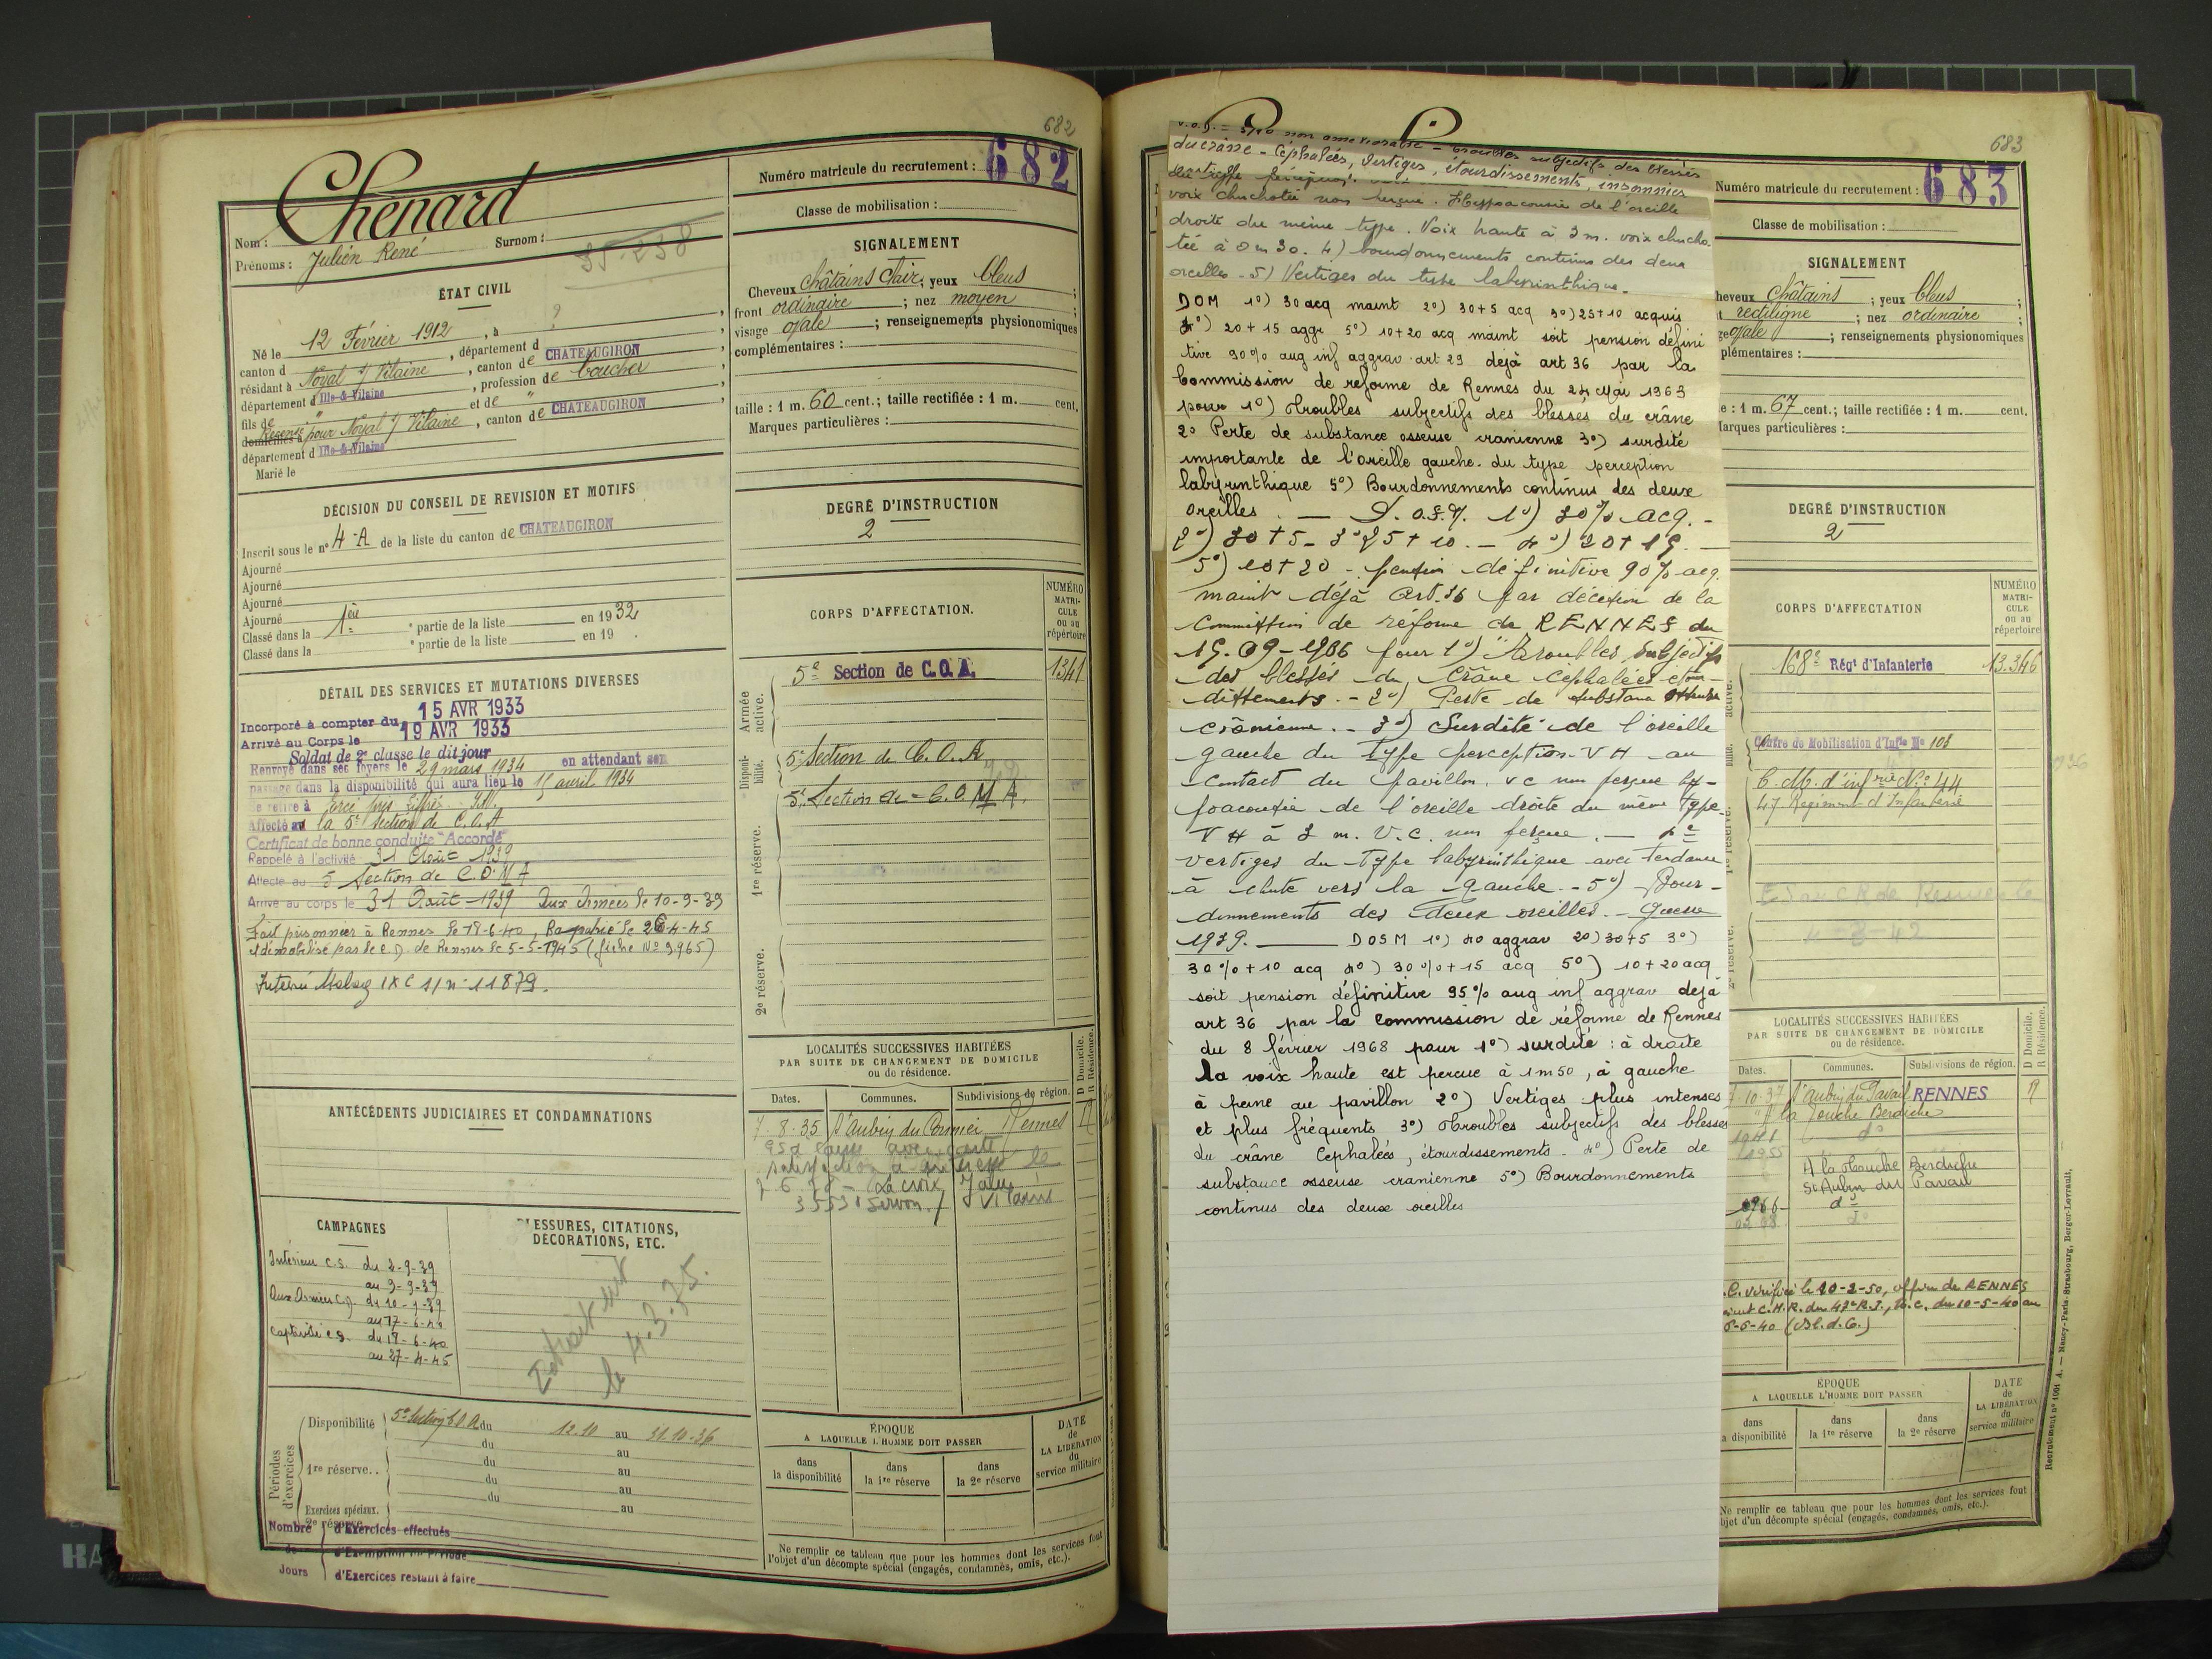 682
Chenard
Nom :
Surnom :
Prénoms : Julien René
35-238
ÉTAT CIVIL
Né le 12 Février 1912, à ?
canton d , département d
résidant à Noyal s/ Vilaine, canton de CHATEAUGIRON
département d Ille-&-Vilaine, profession de boucher
fils de " et de "
domicilié à Recensé pour Noyal s/ Vilaine, canton de CHATEAUGIRON
département d Ille-&-Vilaine
Marié le
DÉCISION DU CONSEIL DE REVISION ET MOTIFS
Inscrit sous le n° 4-A de la liste du canton de CHATEAUGIRON
Ajourné
Ajourné
Ajourné
Ajourné
Classé dans la 1ère partie de la liste en 1932
Classé dans la ° partie de la liste en 19 .
DÉTAIL DES SERVICES ET MUTATIONS DIVERSES
Incorporé à compter du 15 AVR 1933
Arrivé au Corps le 19 AVR 1933
Soldat de 2e classe le dit jour
Renvoyé dans ses foyers le 29 mars 1934 en attendant son
passage dans la disponibilité qui aura lieu le 15 avril 1934
Se retire à
Affecté au la 5e Section de C.O.A
Certificat de bonne conduite "Accordé"
Rappelé à l'activité 31 Août 1939
Affecté au 5 Section de C.O.M.A
Arrivé au corps le 31 Août 1939 Aux Armées le 10-9-39
Fait prisonnier à Rennes le 18-6-40, Rapatrié le 26-4-45
et démobilisé par le C.D. de Rennes le 5-5-1945 (fiche N° 3.965)
Interné Stalag IX C s/ n° 11879.
ANTÉCÉDENTS JUDICIAIRES ET CONDAMNATIONS
CAMPAGNES
Intérieur C.S. du 2-9-39
au 9-9-39
Aux Armées C.D. du 10-9-39
au 17-6-40
Captivité C.S. du 18-6-40
au 27-4-45
BLESSURES, CITATIONS,
DÉCORATIONS, ETC.
Extrait
le 4.3.75.
Périodes d'exercices
Disponibilité 5e Section C.O.A du 12.10 au 31.10-36
du au
1re réserve. . du au
du au
du au
Exercices spéciaux. au
2e réserve
Nombre de Jours
d'Exercices effectués
d'Exemption de période
d'Exercices restant à faire
Numéro matricule du recrutement : 682
Classe de mobilisation :
SIGNALEMENT
Cheveux châtains clair; yeux bleus ;
front ordinaire ; nez moyen ;
visage ovale ; renseignements physionomiques
complémentaires :
taille : 1 m. 60 cent.; taille rectifiée : 1 m. cent.
Marques particulières :
DEGRÉ D'INSTRUCTION
2
CORPS D'AFFECTATION.
NUMÉRO
MATRI-
CULE
ou au
répertoire
Armée active.
5e Section de C.O.A. 1341
Disponibilité.
5e Section de C.O.A
5e Section de C.O.M.A.
1re réserve.
2e réserve.
LOCALITÉS SUCCESSIVES HABITÉES
PAR SUITE DE CHANGEMENT DE DOMICILE
ou de résidence.
D Domicile.
R Résidence.
Dates. Communes. Subdivisions de région.
7.8.35 St Aubin du Cormier Rennes R
La Croix
35531 Servon s/ Vilaine
ÉPOQUE
A LAQUELLE L'HOMME DOIT PASSER
DATE
de
LA LIBÉRATION
du
service militaire
dans
la disponibilité
dans
la 1re réserve
dans
la 2e réserve
Ne remplir ce tableau que pour les hommes dont les services font
l'objet d'un décompte spécial (engagés, condamnés, omis, etc.).
683
V.O.D. = 5/10 non améliorable - Troubles subjectifs des blessés
du crâne - Céphalées, vertiges, étourdissements, insomnies
voix chuchotée non perçue. Hypoacousie de l'oreille
droite du même type. Voix haute à 3 m. voix chucho-
tée à 0 m 30. 4) bourdonnements continus des deux
oreilles - 5) Vertiges du type labyrinthique.
DOM 1°) 30 acq maint 2°) 30+5 acq 3°) 25+10 acquis
4°) 20+15 aggr 5°) 10+20 acq maint soit pension défini
tive 90% aug inf aggrav art 29 déjà art 36 par la
Commission de réforme de Rennes du 24 Mai 1963
pour 1°) Troubles subjectifs des blessés du crâne
2° Perte de substance osseuse cranienne 3°) surdité
importante de l'oreille gauche. du type perception
labyrinthique 5°) Bourdonnements continus des deux
oreilles. — 1°) 30% acq. -
2°) 30+5 - 3°) 25+10. - 4°) 20+15. -
5°) 10+20 - pension définitive 90% acq.
maint déjà Art. 36 par décision de la
Commission de réforme de RENNES du
15-09-1966 pour 1°) Troubles subjectifs
des blessés du Crâne Céphalées étour-
dissements. - 2°) Perte de substance osseuse
crânienne. - 3°) Surdité de l'oreille
gauche du type perception - V H au
contact du pavillon. V C non perçue hy-
poacousie de l'oreille droite du même type.
V H à 3 m. V.C. non perçue. - 4°
Vertiges du type labyrinthique avec tendance
à chute vers la gauche. - 5°) Bour-
donnements des deux oreilles. - Guerre
1939. — DOSM 1°) 40 aggrav 2°) 30+5 3°)
30%+10 acq 4°) 30%+15 acq 5°) 10+20 acq
soit pension définitive 95% aug inf aggrav déjà
art 36 par la Commission de réforme de Rennes
du 8 février 1968 pour 1°) surdité : à droite
la voix haute est perçue à 1m50, à gauche
à peine au pavillon 2°) Vertiges plus intenses
et plus fréquents 3°) Troubles subjectifs des blessés
du crâne Cephalées, étourdissements. 4°) Perte de
substance osseuse cranienne 5°) Bourdonnements
continus des deux oreilles
Numéro matricule du recrutement : 683
Classe de mobilisation :
SIGNALEMENT
heveux châtains ; yeux bleus ;
t rectiligne ; nez ordinaire ;
ge ovale ; renseignements physionomiques
plémentaires :
e : 1 m. 67 cent.; taille rectifiée : 1 m. cent.
arques particulières :
DEGRÉ D'INSTRUCTION
2
CORPS D'AFFECTATION
NUMÉRO
MATRI-
CULE
ou au
répertoire
168e Régt d'Infanterie 13.346
Centre de Mobilisation d'Infie N° 103
C.M. d'infrie N° 44
47 Régiment d'Infanterie
LOCALITÉS SUCCESSIVES HABITÉES
PAR SUITE DE CHANGEMENT DE DOMICILE
ou de résidence.
D Domicile.
R Résidence.
Dates. Communes. Subdivisions de région.
7.10.37 St Aubin du Pavail RENNES R
1941 d°
1955 A la Touche Berdiche
St Aubin du Pavail
1966 d°
.C. vérifié le 10-2-50, offen de RENNES
C.H.R. du 47e R.I., U.C. du 10-5-40 au
(Bl.d.G.)
ÉPOQUE
A LAQUELLE L'HOMME DOIT PASSER
DATE
de
LA LIBÉRATION
du
service militaire
dans
a disponibilité
dans
la 1re réserve
dans
la 2e réserve
Ne remplir ce tableau que pour les hommes dont les services font
bjet d'un décompte spécial (engagés, condamnés, omis, etc.).
Recrutement n° 1091 A. — Nancy-Paris-Strasbourg, Berger-Levrault.